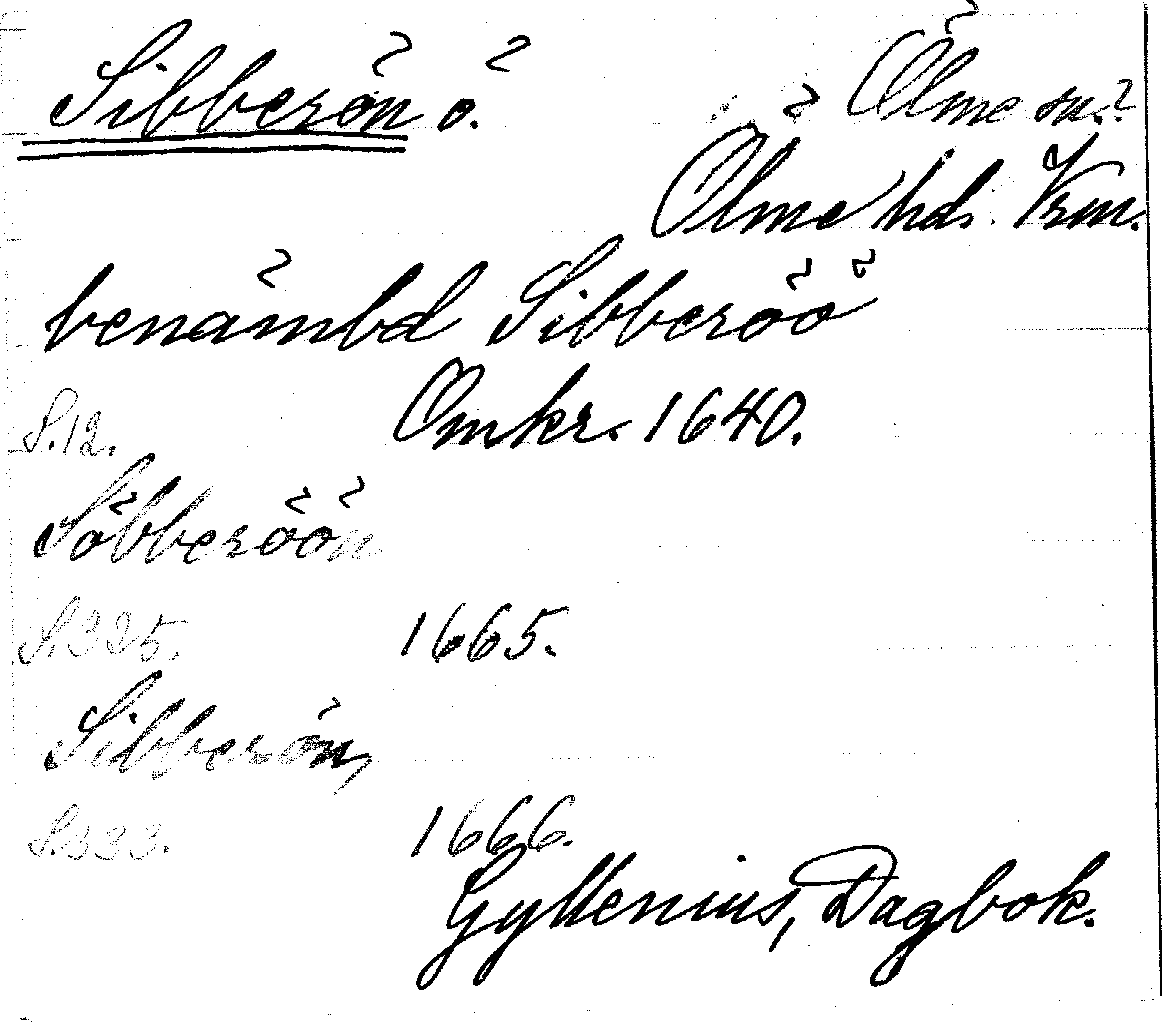 Sibberön ö.
Ölme sn.?
Ölme hd. Vrm.
benämbd Sibberöö
S.12. Omkr. 1640.
Söbberöön
S.325. 1665.
Sibberön,
S.333. 1666.
Gyllenius, Dagbok.